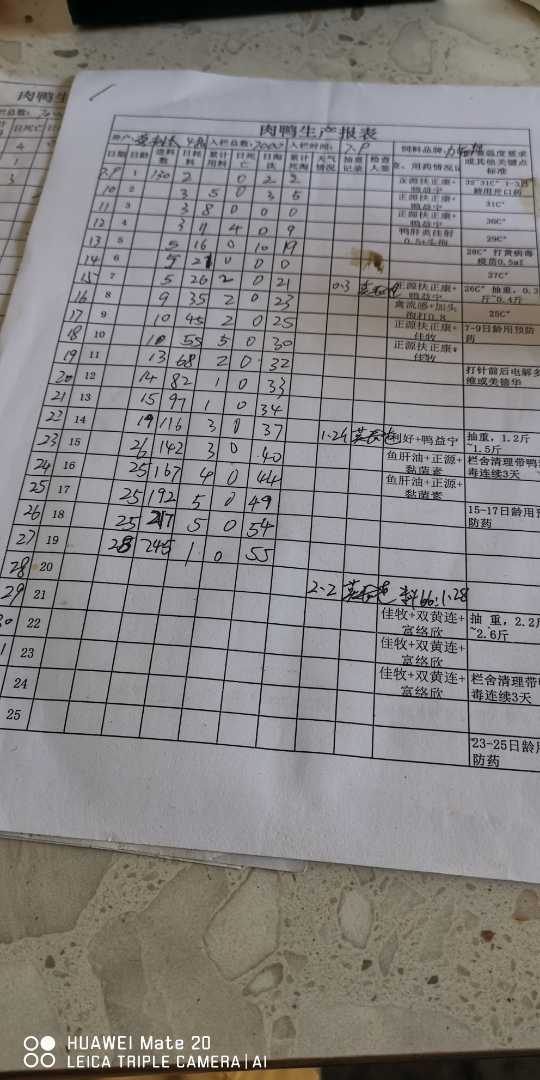 肉鸭生产报表
入栏总数: 7000 入栏时间: 7.9 饲料品牌:
日期 日龄 进料数 日耗料 累计用料 日死亡 日淘汰 累计死淘 天气情况 抽查记录 检查人签
7.9 1 130 2 0 2 2 正源扶正康+鸭益宁 1-3日龄用开口药
10 2 3 5 0 3 5 正源扶正康+鸭益宁 31C°
11 3 3 8 0 0 0 正源扶正康+鸭益宁 30C°
12 4 3 4 0 9 鸭肝炎注射0.5+头孢 29C°
13 5 5 16 0 10 19 28C° 打黄病毒疫苗0.5ml
14 6 5 21 0 0 0 27C°
15 7 5 26 2 0 21 0.3 正源扶正康+鸭益宁 26C° 抽重, 0.3斤~0.4斤
16 8 9 35 2 0 23 禽流感+加头孢打0.8 25C°
17 9 10 45 2 0 25 正源扶正康+佳牧 7-9日龄用预防药
18 10 10 55 5 0 30 正源扶正康+佳牧
19 11 13 68 2 0 32 打针前后电解多维或美德华
20 12 14 82 1 0 33
21 13 15 97 1 0 34
22 14 19 116 3 0 37 1.24 利好+鸭益宁 抽重, 1.2斤~1.5斤
23 15 26 142 3 0 40 鱼肝油+正源+黏菌素 栏舍清理带鸭 毒连续3天
24 16 25 167 4 0 44 鱼肝油+正源+黏菌素
25 17 25 192 5 0 49 15-17日龄用预防药
26 18 25 217 5 0 54
27 19 28 245 1 0 55
28 20
29 21 2.2 料66:1.28
30 22 佳牧+双黄连+富络欣 抽 重, 2.2斤~2.6斤
23 佳牧+双黄连+富络欣
24 佳牧+双黄连+富络欣 栏舍清理带鸭 毒连续3天
25 23-25日龄用 防药
HUAWEI Mate 20
LEICA TRIPLE CAMERA | AI